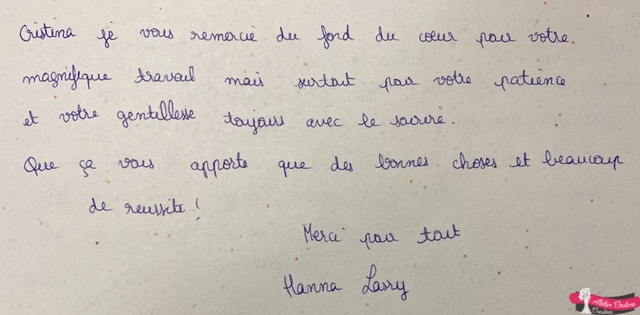 Cristina je vous remercie du fond du cœur pour votre.
magnifique travail mais surtout pour votre patience
et votre gentillesse toujours avec le sourire.
Que ça vous apporte que des bonnes choses et beaucoup
de reussite !
Merci pour tout
Hanna Lasry